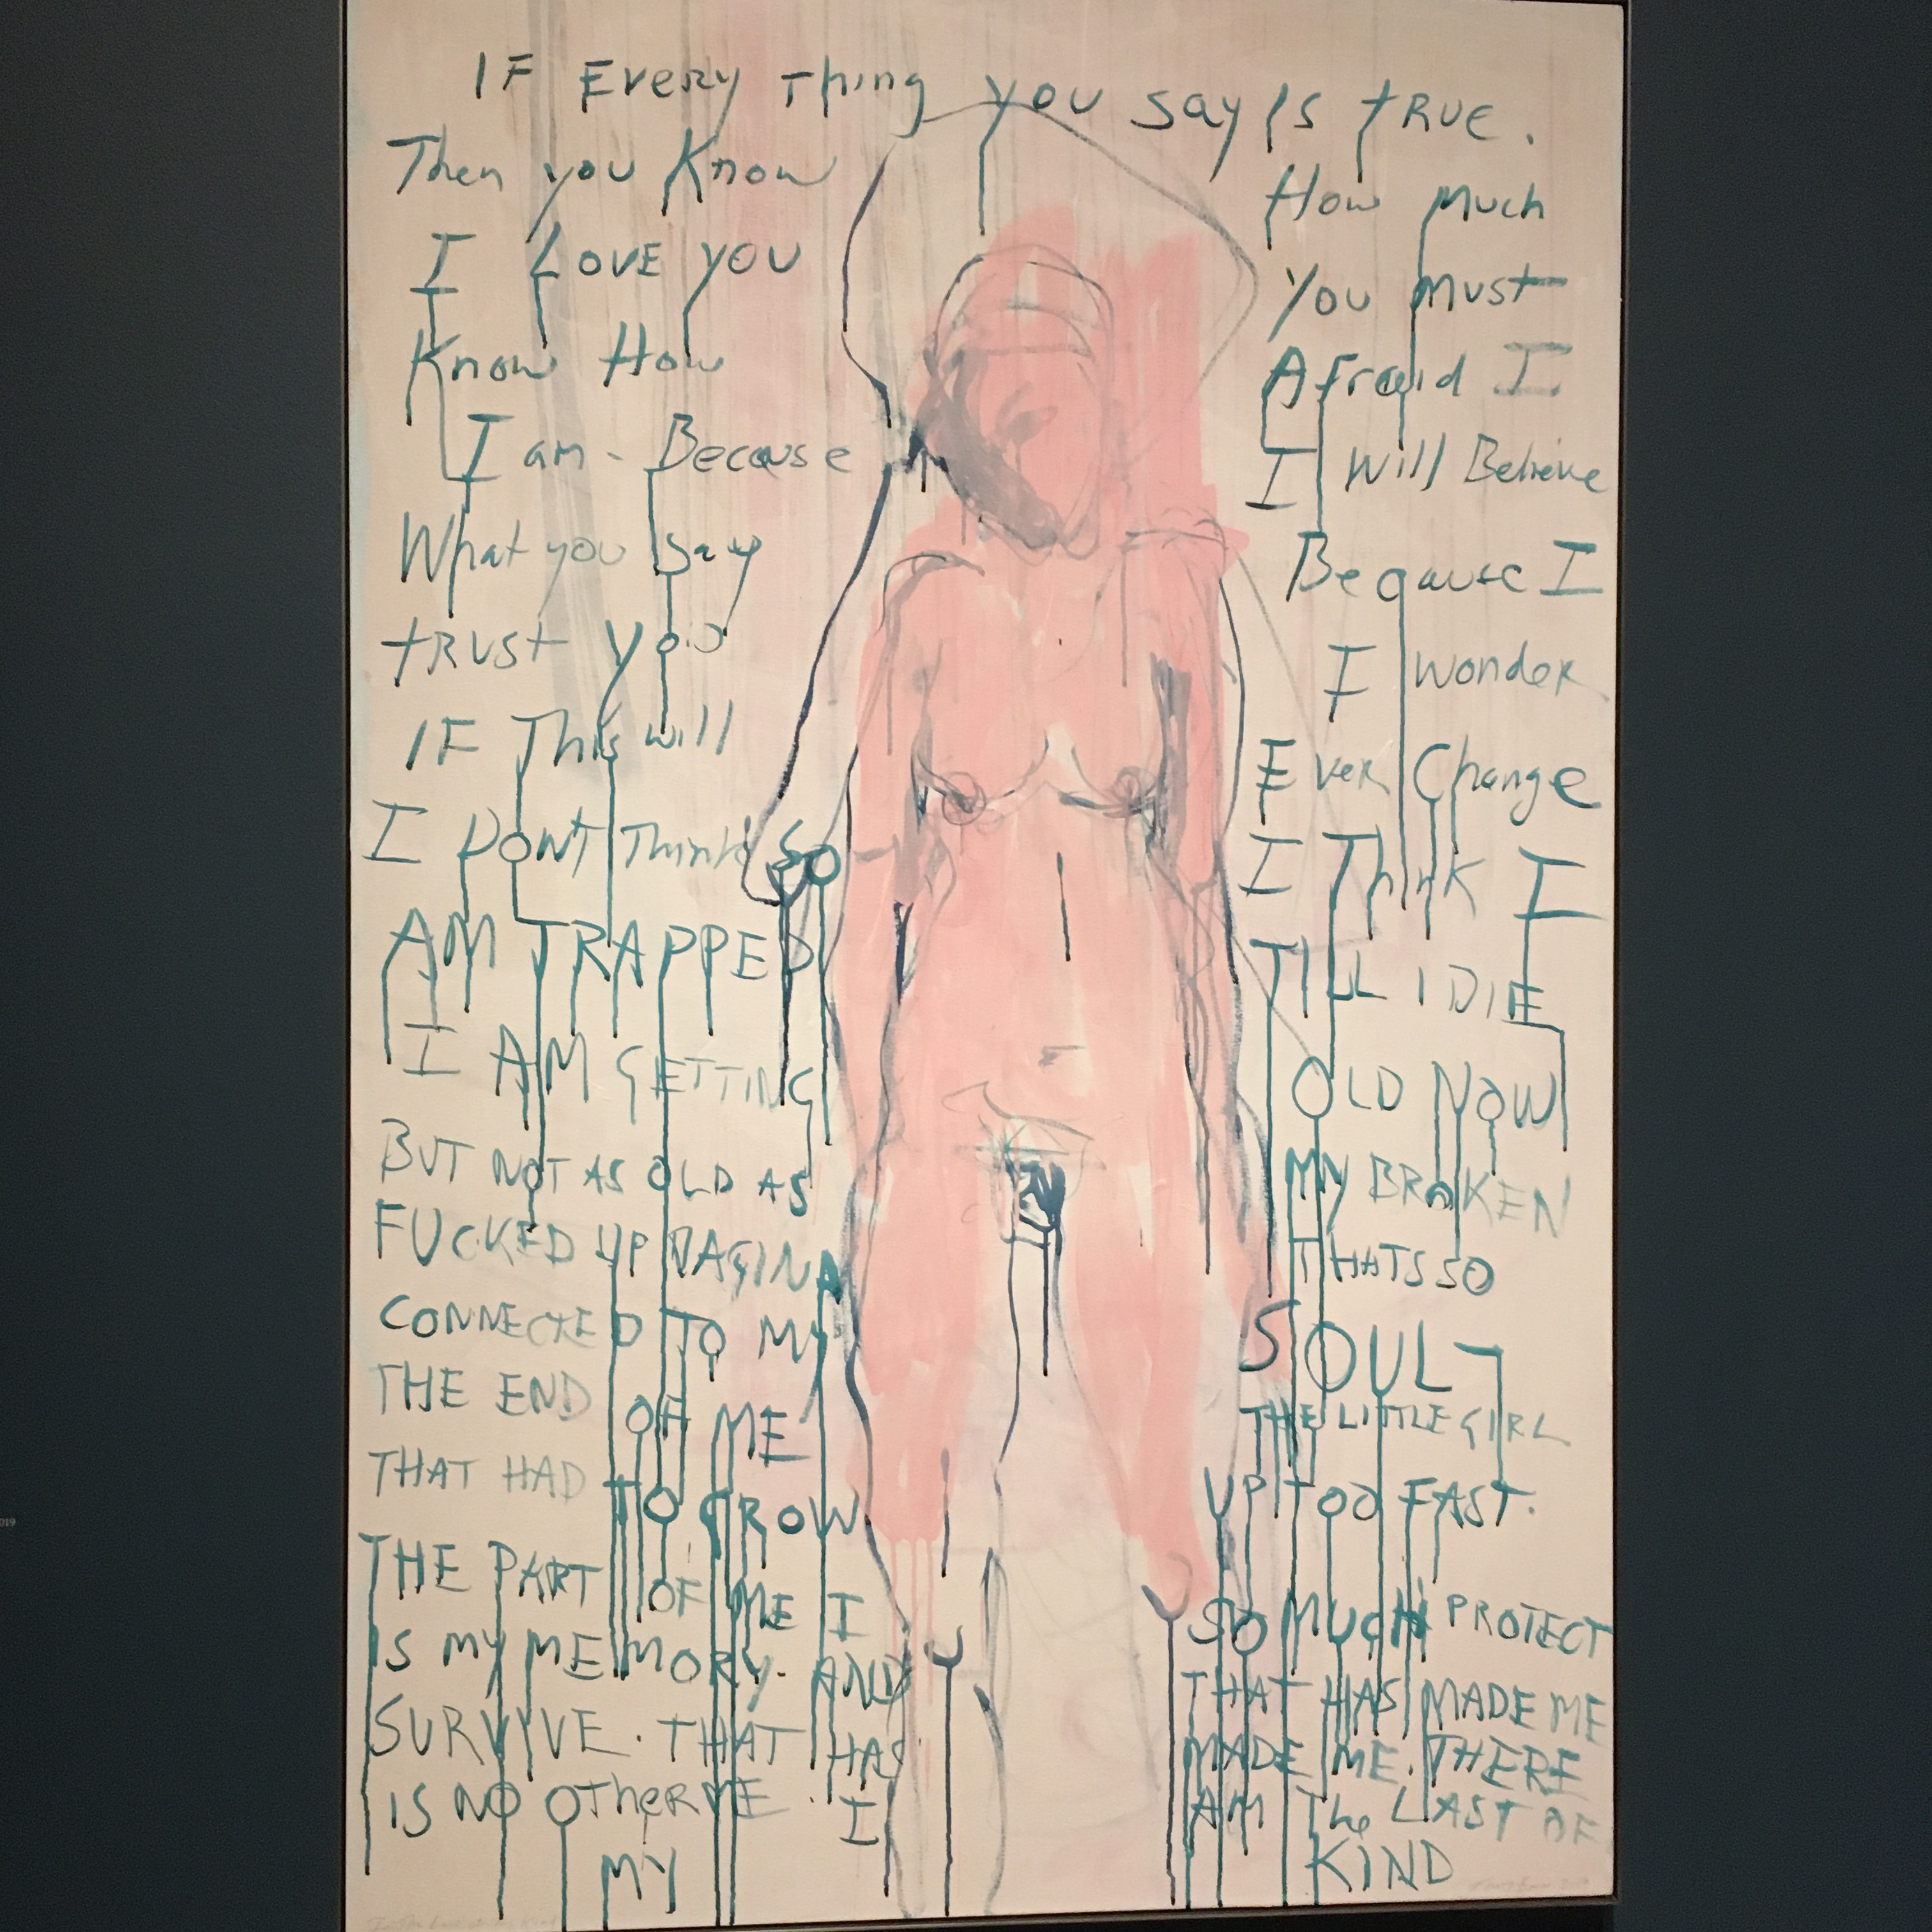 IF EVERY Thing you say Is TRUE.
Then you Know How Much
I LOVE YOU You Must
Know How Afraid I
I am - Because I Will Believe
What you say Because I
TRUST you I wonder
IF This will Ever Change
I DONT Think SO I Think I
AM TRAPPED TILL I DIE
I AM GETTING OLD NOW
BUT NOT AS OLD AS MY BROKEN
FUCKED UP VAGINA THATS SO
CONNECTED TO MY SOUL -
THE END OF ME THE LITTLE GIRL
THAT HAD TO GROW UP TOO FAST.
THE PART OF ME I SO MUCH PROTECT
IS MY MEMORY. AND THAT HAS MADE ME
SURVIVE. THAT HAS MADE ME. THERE
IS NO OTher ME. I AM The LAST OF
MY KIND